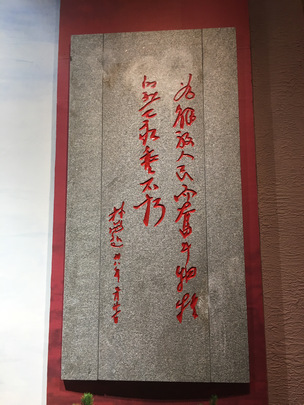 为解放人民而奋斗牺牲
的烈士永垂不朽